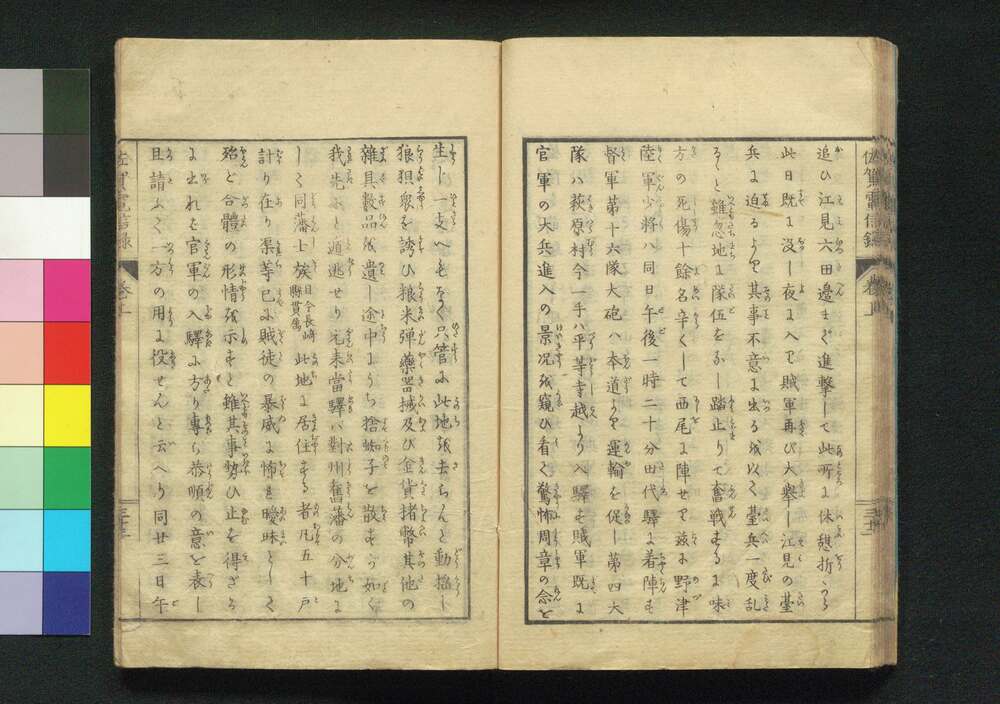 佐賀電信録 巻上
追ひ江見六田邊まで進撃して此所に休憩折から
此日既に没し夜に入て賊軍再び大擧し江見の臺
兵に迫るより其事不意に出るを以く臺兵一度乱
ると雖忽地に隊伍をなし踏止りて奮戦するに味
方の死傷十餘名辛くして西尾に陣せり茲に野津
陸軍少将ハ同日午後一時二十分田代驛に着陣す
督軍第十六隊大砲ハ本道より運輸を促し第四大
隊ハ萩原村今一手ハ平等寺越より入驛す賊軍既に
官軍の大兵進入の景况を窺ひ看く驚怖周章の念を
生し一支へもなく只管に此地を去らんと動揺し
狼狽衆を誘ひ粮米弾藥器械及び金貨楮幣其他の
雜具數品を遺し途中にうち捨蜘子を散すが如く
我先にと遁逃せり元来當驛ハ對州舊藩の分地に
しく同藩士族目今長崎縣貫属此地に居住する者凡五十戸
計り在り渠等已に賊徒の暴威に怖を曖昧としく
殆ど合體の形情を示すと雖其事勢ひ止を得ざる
に出れを官軍の入驛に方り専ら恭順の意を表し
且請ふく一方の用に役せんと云へり同廿三日午
佐賀電信録 巻上